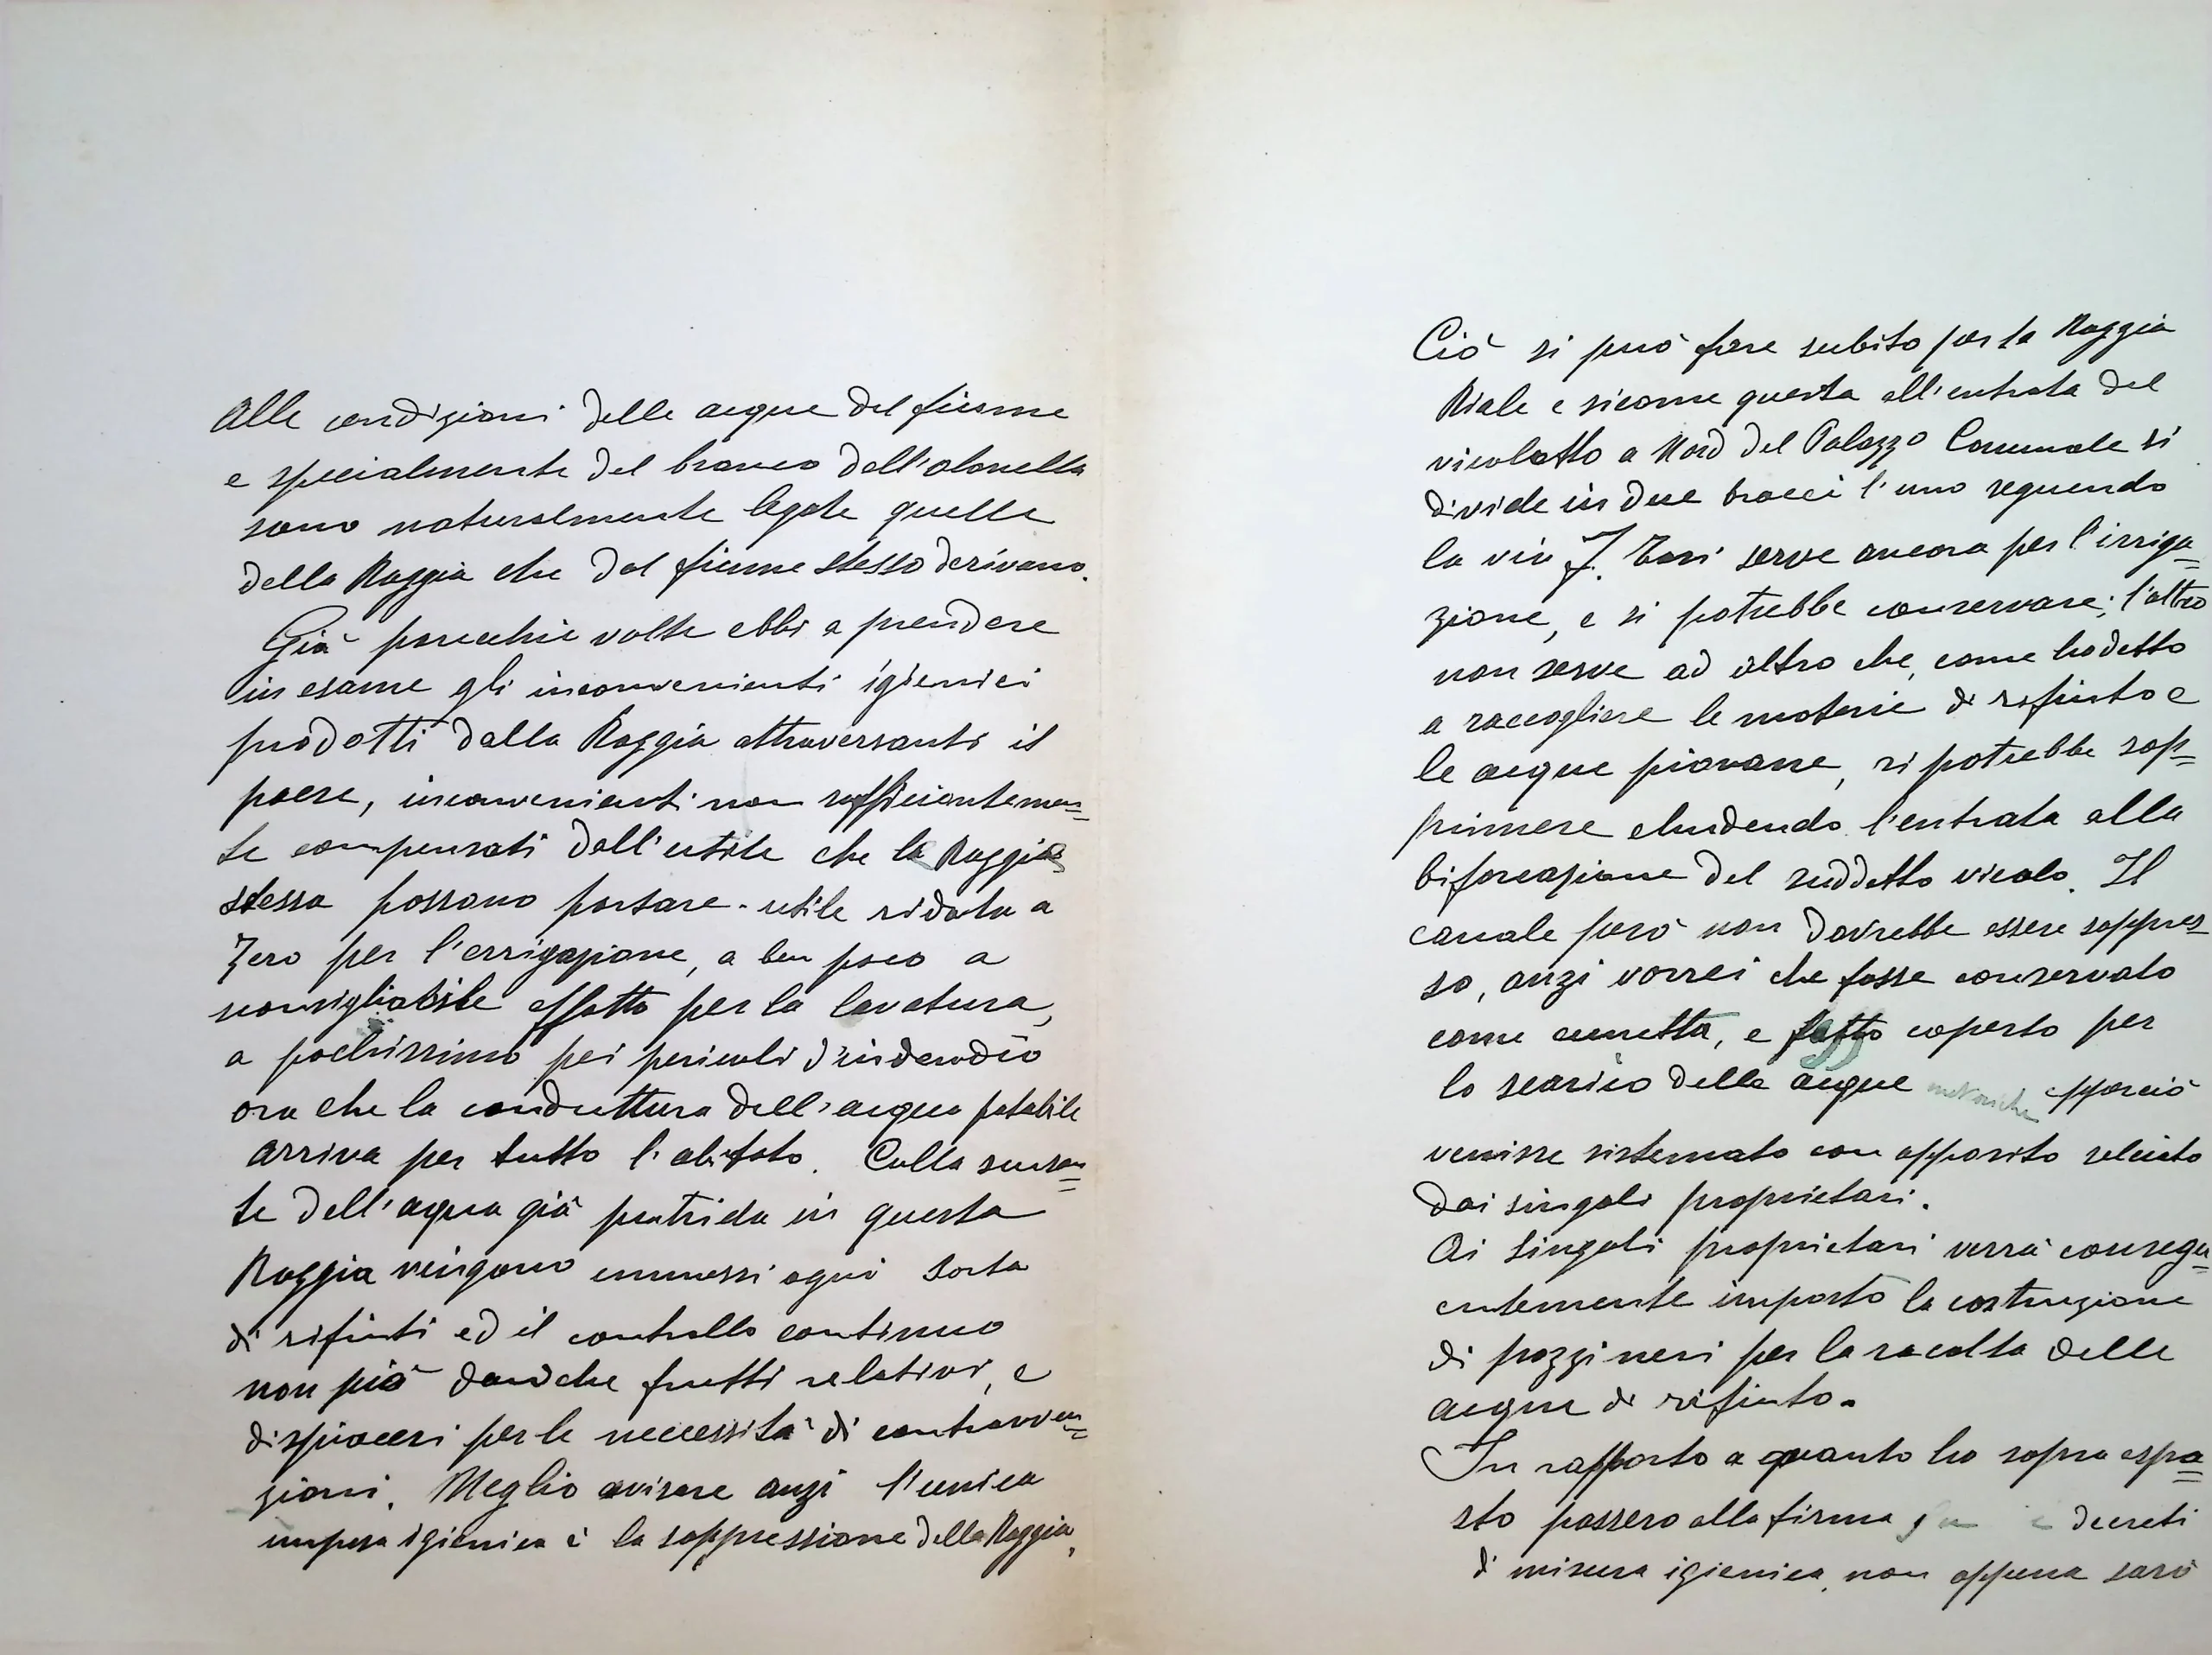 Alle condizioni delle acque del fiume
e specialmente del branco dell'olonella
sono naturalmente legate quelle
della Roggia che dal fiume stesso derivano.
Già parecchie volte ebbi a prendere
in esame gli inconvenienti igienici
prodotti dalla Roggia attraversanti il
paese, inconvenienti non sufficientemen=
te compensati dall'utile che la Roggia
stessa possano portare - utile ridotto a
Zero per l'errigazione, a ben poco a
sconsigliabile affatto per la lavatura,
a pochissimo pei pericoli d'indendio
ora che la conduttura dell'acqua potabile
arriva per tutto l'abitato. Colla
te dell'aqua già putrida in questa
Roggia vengono immessi ogni sorta
di rifiuti ed il controllo continuo
non può dar che frutti relativi, e
dispiaceri per le necessità di contravven=
zioni. Meglio avisare anzi l'unica
igienica è la soppressione della Roggia,
Ciò si può fare subito per la Roggia
Riale e sicome questa all'entrata del
vicoletto a Nord del Palazzo Comunale si
divide in due bracci l'uno seguendo
la via F. Tosi serve ancora per l'irriga=
zione, e si potrebbe conservare; l'altro
non serve ad altro che, come ho detto
a raccogliere le materie di rifiuto e
le acque piovane, si potrebbe sop=
primere chudendo l'entrata alla
biforcazione del suddetto vicolo. Il
canale però non dovrebbe essere soppres=
so, anzi vorrei che fosse conservato
come cunetta, e fatto coperto per
lo scarico delle acque meteoriche epperciò
venisse sistemato con apposito selciato
dai singoli proprietari.
Ai singoli proprietari verrà consegu=
entemente imposto la costruzione
di pozzi neri per la racolta delle
acque di rifiuto.
In rapporto a quanto ho sopra espo=
sto passero alla firma decreti
di misura igienica, non appena sarò